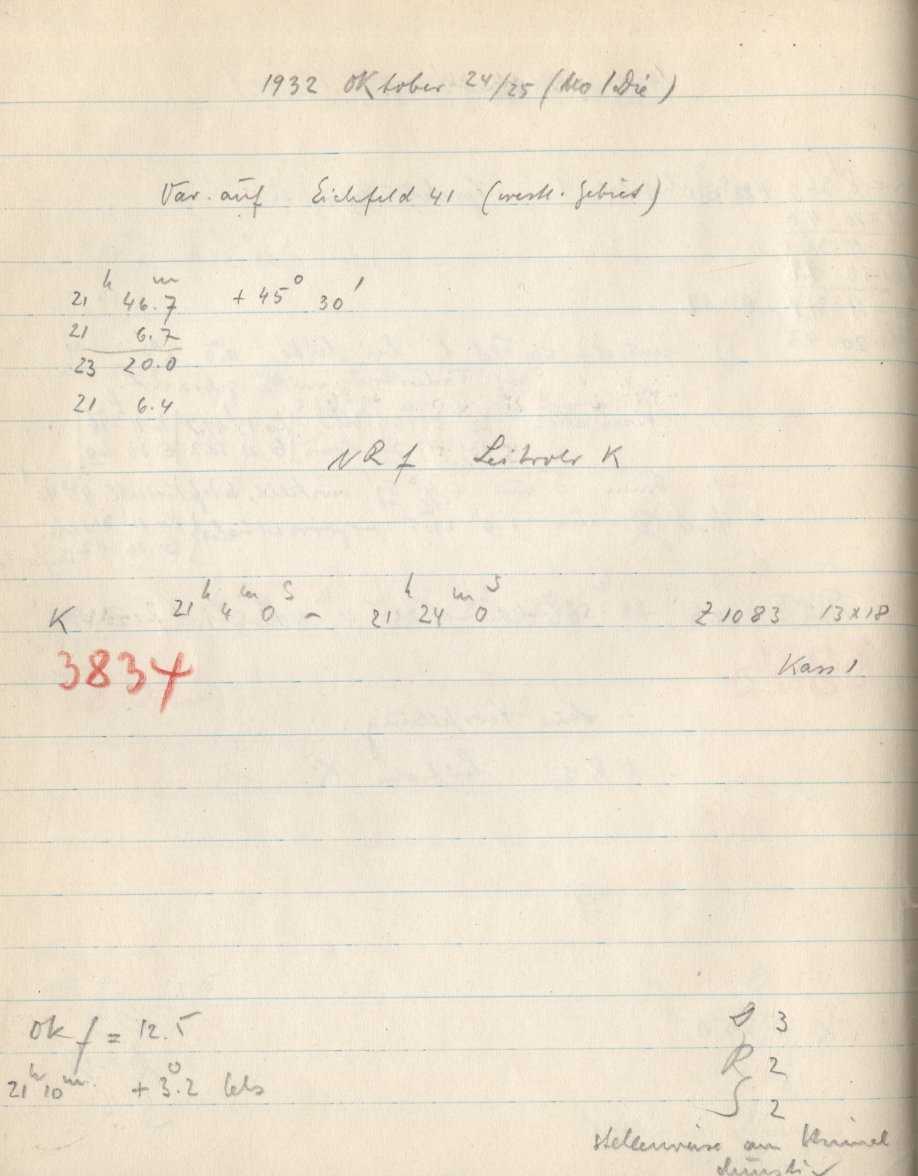 1932 Oktober 24/25 (Mo/Die)
Var. auf Eichfeld 41 (westl. Gebiet)
21ʰ 46.7ᵐ +45° 30'
21 6.7
23 20.0
21 6.4
NRf Leitrohr K
K 21ʰ 4ᵐ 0ˢ – 21ʰ 24ᵐ 0ˢ Z 1083 13x18
3834 Kass 1
Ok f = 12.5
21ʰ 10ᵐ +3.2° Cels
D 3
R 2
S 2
stellenweise am Himmel
dunstig